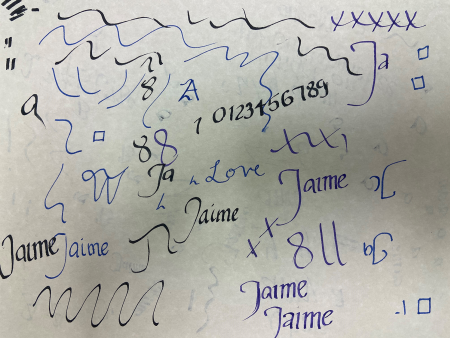 XXXXX
Ja
8
A
a
1 0123456789
88
Ja
Love
Jaime
Jaime
Jaime Jaime
XX
8ll
Jaime
Jaime
-1